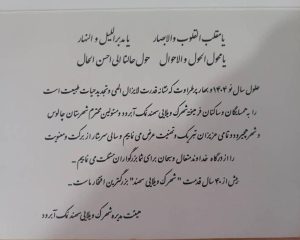 یا مقلب القلوب والابصار یا مدبر اللیل و النهار
یا محول الحول والاحوال حول حالنا الی احسن الحال
حلول سال نو ۱۴۰۴ و بهار پر طراوت که نشانه قدرت لایزال الهی و تجدید حیات طبیعت است
را به همسایگان و ساکنان فرهیخته شهرک ویلایی سهند نمک آبرود و مسئولین محترم شهرستان چالوس
و شهر و تمامی عزیزان تبریک و تهنیت عرض می نماییم و سالی سرشار از برکت و معنویت
را از درگاه خداوند متعال و سبحان برای شما بزرگواران مسئلت می نماییم .
بیش از ۴۰ سال قدمت " شهرک ویلایی سهند " بزرگترین افتخار ماست ..
هیئت مدیره شهرک ویلایی سهند نمک آبرود